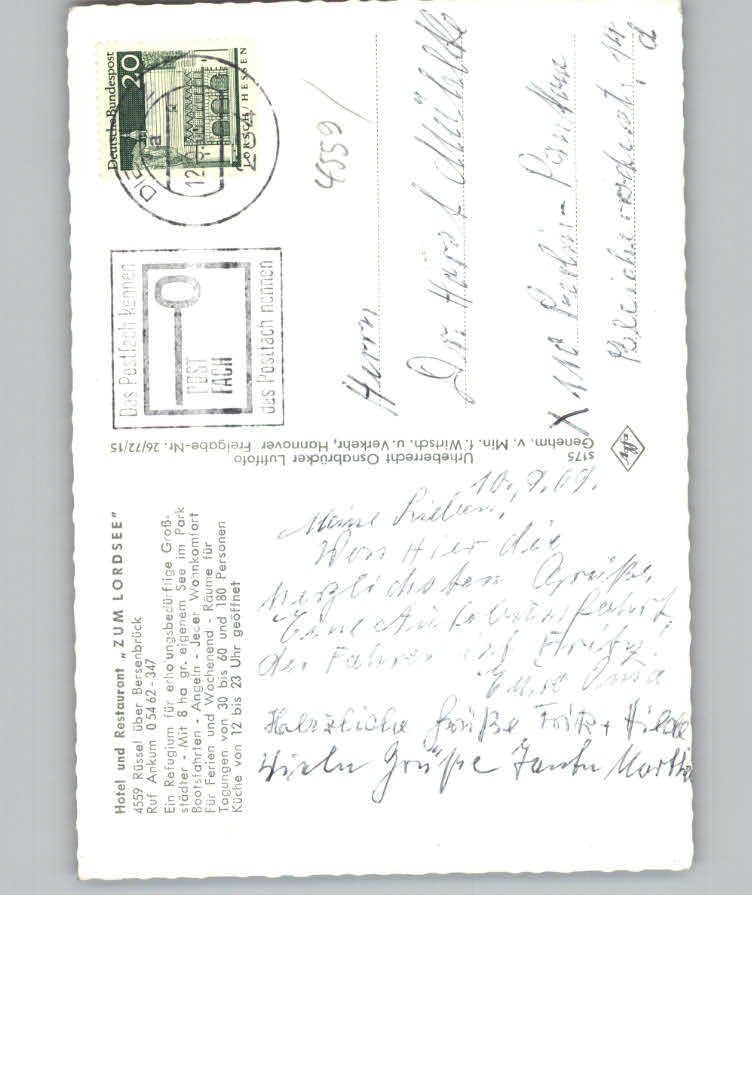 Hotel und Restaurant „ZUM LORDSEE"
4559 Rüssel über Bersenbrück
Ruf Ankum 0 54 62 - 347
Ein Refugium für erholungsbedürftige Groß-
städter - Mit 8 ha gr. eigenem See im Park
Bootsfahrten - Angeln - Jeder Wohnkomfort
Für Ferien und Wochenend - Räume für
Tagungen von 30 bis 60 und 180 Personen
Küche von 12 bis 23 Uhr geöffnet
10.9.69.
Meine Lieben,
Von Hier die
herzlichsten Grüße,
Eine Autobusfahrt,
der Fahrer ist Fritz!
Eure Oma
Herzliche Grüße Fritz + Hilde
Viele Grüße Tante Martha
S175
Genehm. v. Min. f. Wirtsch. u. Verkehr, Hannover Freigabe-Nr. 26/72/15
Urheberrecht Osnabrücker Luftfoto
Das Postfach kennen
POST
FACH
das Postfach nennen
Deutsche Bundespost
20
LORSCH/HESSEN
a
12
4559
Herrn
Dr. Horst
X 110 Berlin-Pankow
14
d